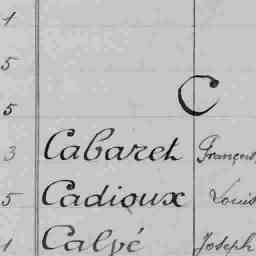 1
5
C
5
3 Cabaret François
5 Cadioux Louis
1 Calvé Joseph